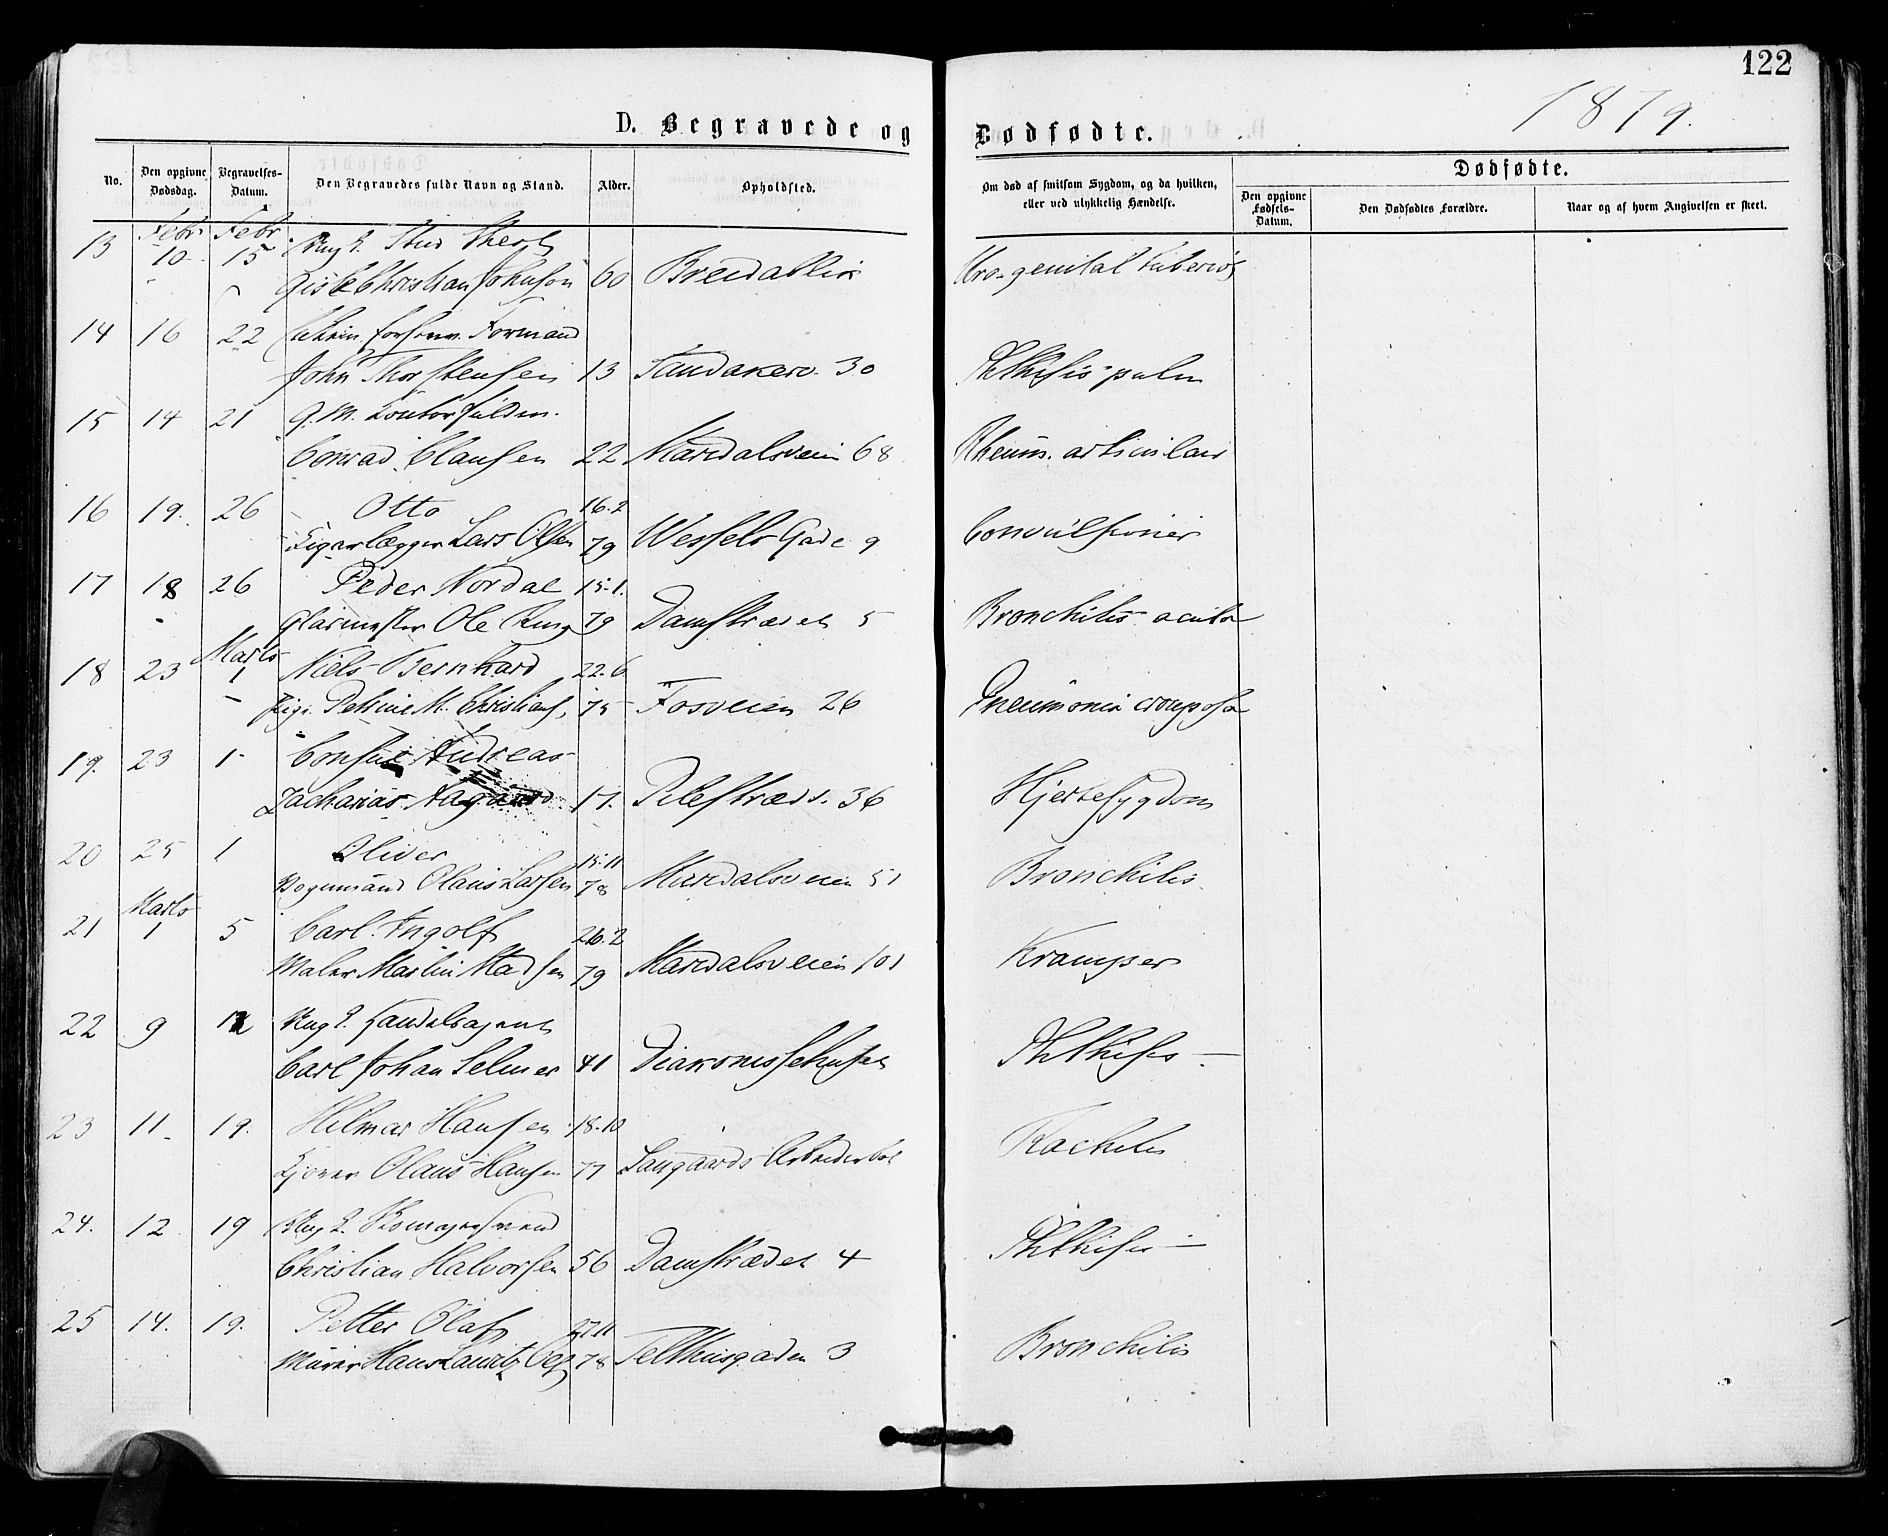 122
1879.
D. Begravede og Dødfødte.
No.
Den opgivne Dødsdag.
Begravelses-Datum.
Den Begravedes fulde Navn og Stand.
Alder.
Opholdsted.
Om død af smitsom Sygdom, og da hvilken, eller ved ulykkelig Hændelse.
Dødfødte.
Den opgivne Fødsels-Datum.
Den Dødfødtes Forældre.
Naar og af hvem Angivelsen er skeet.
Febr. Febr.
13 10 15 Ung K. Stud
Christian Johnson 60 Bredablik Uro-genital
14 16 22 Formand
John Thorstensen 13 Sandakerv. 30 Phthisis pulm
15 14 21 G. M.
Conrad Clausen 22 Maridalsveien 68 Rheum. articular
16 19. 26 Otto 16.2
Cigarlægger Lars Olsen 79 Wessels Gade 9 Convulsioner
17 18 26 Peder Nordal 15.1.
Glarmester Ole 79 Damstrædet 5 Bronchitis acuta
Marts
18 23 1 Niels Bernhard 22.6
Petrine M. Christians. 75 Fosveien 26 Pneumonia crouposa
19. 23 1 Consul Andreas
Zacharias Aagaard 17. Pilestræd. 36 Hjertesygdom
20 25 1 Oliver 15.11
Vognmand Olaus Larsen 78 Maridalsveien 51 Bronchitis.
Marts
21 1 5 Carl Ingolf 26.2
Maler Martin Madsen 79 Maridalsveien 101 Kramper
22 9 12 Handelsagent
Carl Johan Selmer 41 Diakonissehuset Phthisis
23 11. 19. Hilmar Hansen 18.10
Olaus Hansen 77 Rachitis
24. 12 19
Christian Halvorsen 56 Damstrædet 4 Phthisis
25 14. 19. Petter Olaf 27.11
Murer Hans Lauritz 78 Telthusgaden 3 Bronchitis